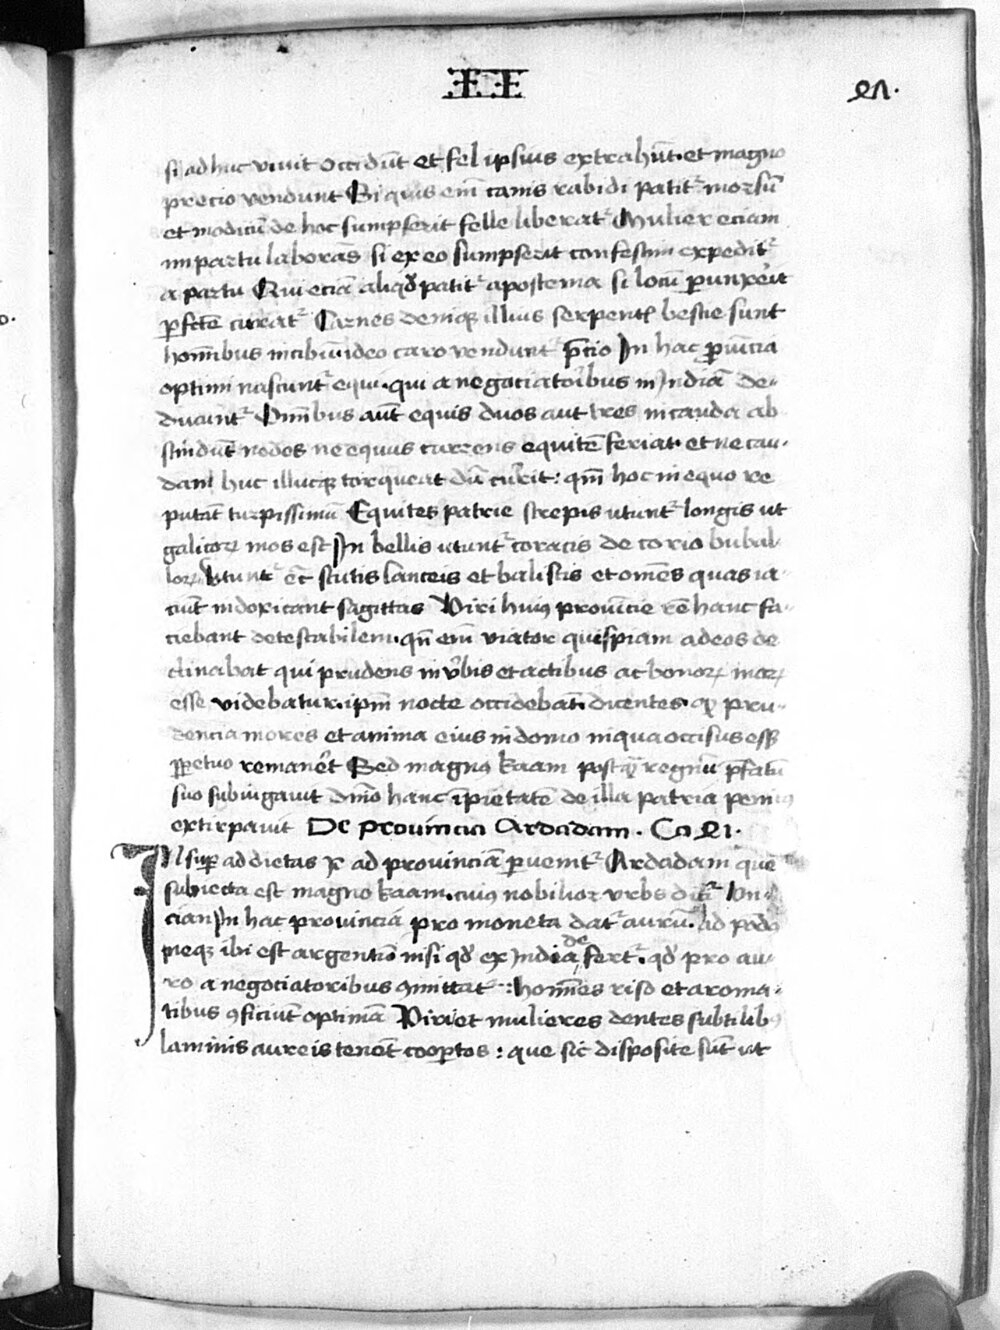 II
si ad huc viuit occidūt et fel ipsius extrahūt. et magno
precio vendunt Si quis eīm canis rabidi patit᷑ morsū
et modicū de hoc sumpserit felle liberat᷑ Mulier eciam
in partu laborās si ex eo sumpserit confestim expedit᷑
a partu Qui eciā aliqd̓ patit᷑ apostema si locū ꝑunxerit
ꝑfc̄te curat᷑ Carnes deniqꝫ illius serpentꝭ bestie sunt
hom̄ibus in cibū. ideo caro vendunt᷑ p̄cio In hac ꝓuincia
optimi nascunt᷑ equi. qui a negociatoribus in Indiā de-
ducunt᷑ Omībus aūt equis duos aut tres in cauda ab
scindūt nodos ne equus currens equitē feriat. et ne cau-
dam huc illucqꝫ torqueat dū currit: qm̄ hoc in equo re
putāt turpissimū Equites patrie strepis utunt᷑ longis ut
galicoꝝ mos est In bellis utunt᷑ coracis de corio bubal-
loꝝ Utunt᷑ ec̄ scutis lanceis et balistis et om̄es quas ia-
ciūt indoxicant sagittas Viri huiꝰ prouīcie rē hanc fa-
ciebant detestabilem. qn̄ eīm viator quispiam ad eos de
clinabat qui prudens in v̓bis et actibus ac bonoꝝ moꝝ
esse videbatur. ipm̄ nocte occidebāt. dicentes. qꝫ pru-
dencia mores et anima eius in domo in qua occisus esset
ꝑpetuo remaneret Sed magnꝰ kaam postqꝫ regnū p̄fatū
suo subiugauit dn̄io hanc īpietatē de illa patria penitꝰ
extirpauit De prouincia Ardadam. Ca. 41.
Insuꝑ ad dietas v ad prouinciā ꝑuenit᷑ Ardadam que
subiecta est magno kaam. cuiꝰ nobilior vrbs dicit᷑ Un-
cian In hac prouincia pro moneta dat᷑ aurū. ad pondꝰ
neqꝫ ibi est argentū nisi qd̓ ex India defert᷑. qd̓ pro au-
ro a negociatoribus ꝯmittat᷑: hom̄es riso et aroma-
tibus ꝯficiūt optimā Viri et mulieres dentes subtilibꝰ
laminis aureis tenēt cooꝑtos: que sic disposite sūt ut